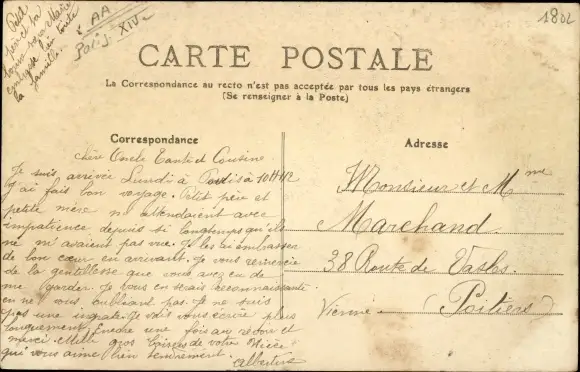 Petit
père
embrasse bien toute
la famille.
AA
Paris XIV
1802
CARTE POSTALE
La Correspondance au recto n'est pas acceptée par tous les pays étrangers
(Se renseigner à la Poste)
Correspondance
Adresse
chère Oncle Tante et Cousine
Je suis arrivée Lundi à
J'ai fais bon voyage. Petit père et
petite mère m'attendaient avec
impatience depuis si longtemps qu'ils
ne m'avaient pas vue. Je les ai embrasser
de bon cœur en arrivant. Je vous remercie
de la gentillesse que vous avez eu de
me garder. Je vous en serais reconnaissante
en ne vous oubliant pas. Je ne suis
pas une ingrate. Je vais vous écrire plus
longuement. Encore une fois au revoir et
merci. Mille gros baisers de votre Nièce
qui vous aime bien tendrement.
Albertine
Monsieur et Mme
Marchand
38 Route de Vasles.
Vienne. (Poitiers)